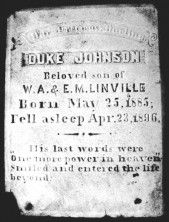 Our Precious Darling
DUKE JOHNSON
Beloved son of
W.A.& E.M.LINVILLE
Born May 25,1885;
Fell asleep Apr.23,1896.
"His last words were
One more power in heaven"
Smiled and entered the life
beyond.